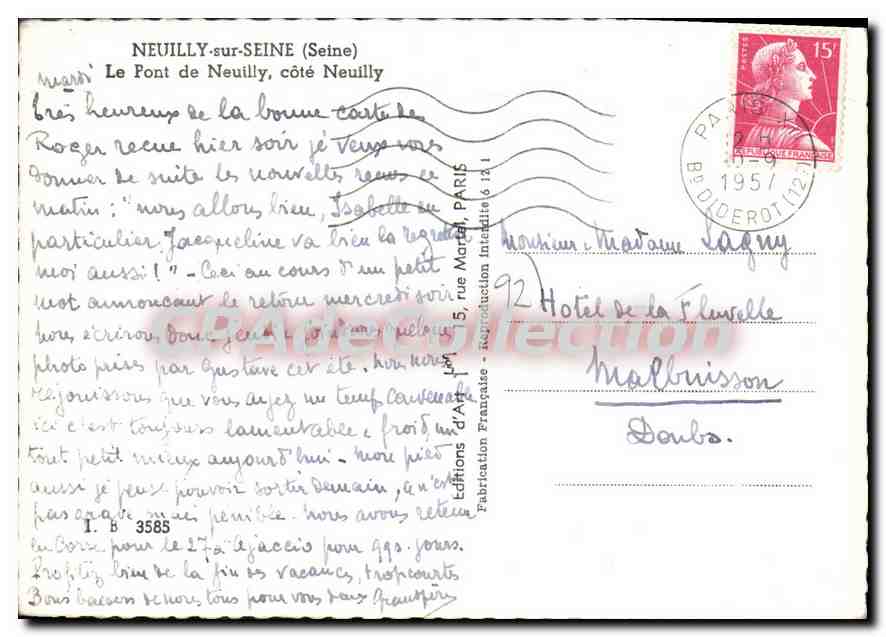 NEUILLY-sur-SEINE (Seine)
Le Pont de Neuilly, côté Neuilly
mardi
Très heureux de la bonne carte de
Roger recue hier soir je veux vous
donner de suite les nouvelles recues ce
matin: "nous allons bien, Isabelle en
particulier. Jacqueline va bien la regretter
moi aussi!" - Ceci au cours d'un petit
mot annoncant le retour mercredi soir
nous écrirons donc
photo prises par Gustave cet été. nous nous
réjouissons que vous ayez un temps convenable
ici c'est toujours lamentable, froid, un
tout petit mieux aujourd'hui - mon pied
aussi je pense pouvoir sortir demain, ce n'est
pas grave mais pénible. nous avons retenu
en Corse pour le 27 à Ajaccio pour qqs. jours.
Profitez bien de la fin des vacances, trop courtes
Bons baisers de nous tous pour vous deux
I. B 3585
Editions d'Art LM 15, rue Martel, PARIS
Fabrication Française - Reproduction interdite 6 12 1
POSTES
15F
REPUBLIQUE FRANÇAISE
PARIS XII
12 H
10-9
1957
BD DIDEROT (12E)
Monsieur & Madame Lagny
92) Hotel de la Fluvelle
Malbuisson
Doubs.
CPAdeCollection